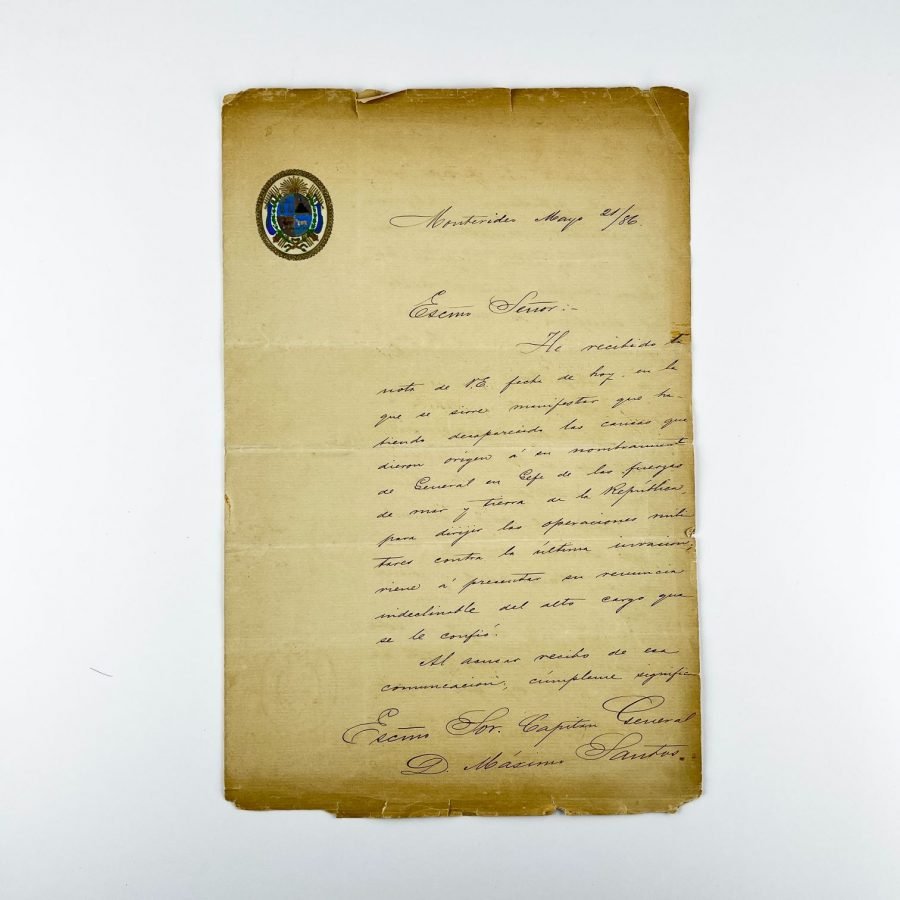 Montevideo Mayo 21/86.
Escmo Señor:-
He recibido la
nota de V.E. fecha de hoy, en la
que se sirve manifestar que ha-
biendo desaparecido las causas que
dieron origen á su nombramient
de General en Gefe de las fuerzas
de mar y tierra de la República,
para dirijir las operaciones mili
tares contra la última invasion,
viene á presentar su renuncia
indeclinable del alto cargo que
se le confió.
Al acusar recibo de esa
comunicacion, cúmpleme significa
Escmo Sor. Capitan General
D. Máximo Santos.